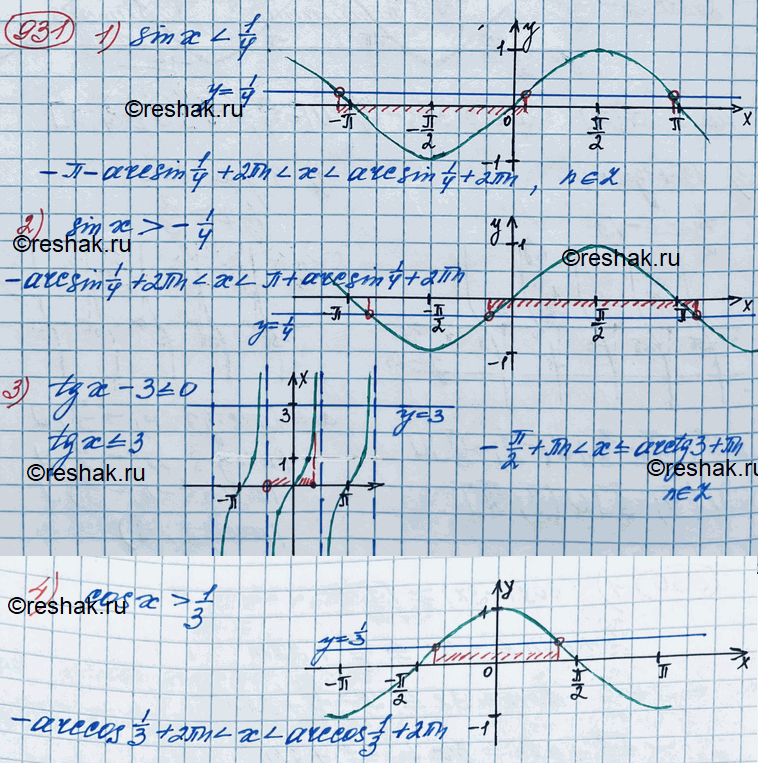 931 1) sin x < 1/4
y
1
y = 1/4
©reshak.ru
-π -π/2 0 π/2 π x
-1
-π - arcsin 1/4 + 2πn < x < arcsin 1/4 + 2πn, n∈Z
2) sin x > -1/4
©reshak.ru
y
1
©reshak.ru
-arcsin 1/4 + 2πn < x < π + arcsin 1/4 + 2πn
-π -π/2 π/2 π x
y = 1/4
-1
3) tg x - 3 ≤ 0
x
3
y = 3
tg x ≤ 3
1
-π/2 + πn < x ≤ arctg 3 + πn
©reshak.ru
©reshak.ru
n∈Z
-π π
4) cos x > 1/3
©reshak.ru
y
1
y = 1/3
-π -π/2 0 π/2 π x
-1
-arccos 1/3 + 2πn < x < arccos 1/3 + 2πn